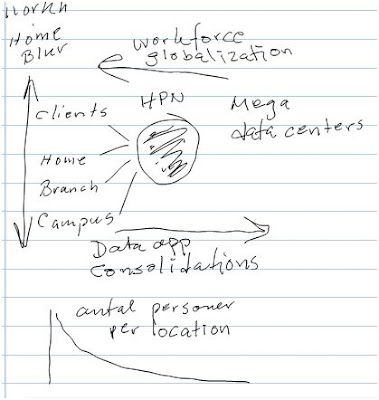 Home
Blur
workforce
globalization
Clients
HPN
Mega
data centers
Home
Branch
Campus
Data app
Consolidations
antal personer
per location